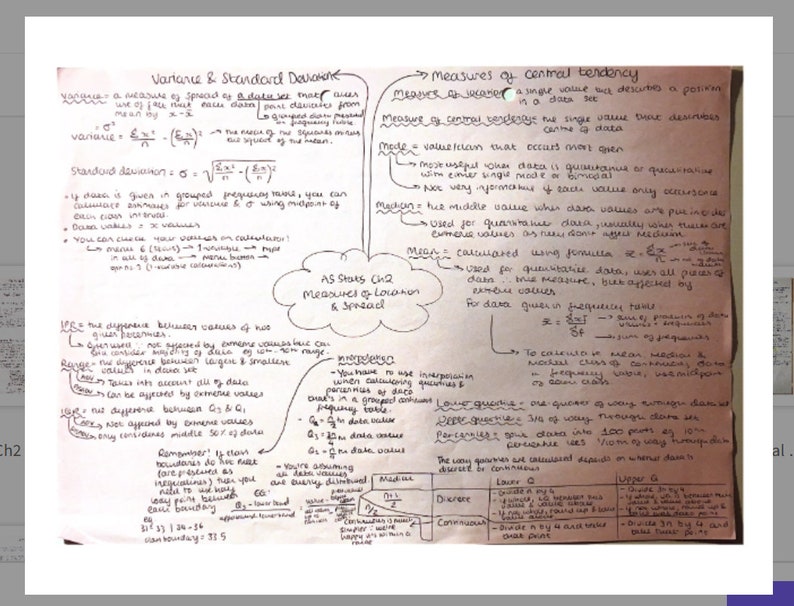 Variance & Standard Deviation
Variance = a measure of spread of a data set that
use of fact that each data point deviates from
mean by x - x̄
grouped data presented
in frequency table
= σ²
Variance = Σx²/n - (Σx/n)² → the mean of the squares minus
the square of the mean.
Standard deviation = σ = √(Σx²/n - (Σx/n)²)
• If data is given in grouped frequency table, you can
calculate estimates for variance & σ using midpoint of
each class interval.
• Data values = x values
• You can check your values on calculator!
↳ menu 6 (stats) → 1 variable → type
in all of data → menu button →
option 3 (1-variable calculations)
AS Stats Ch2
Measures of Location
& Spread
Measures of central tendency
Measure of location = a single value that describes a position
in a data set
Measure of central tendency = the single value that describes
centre of data
Mode = value/class that occurs most often
→ most useful when data is qualitative or quantitative
with either single mode or bimodal
→ Not very informative if each value only occurs once
Median = the middle value when data values are put in order
→ used for quantitative data, usually when there are
extreme values as they don't affect median
Mean = calculated using formula x̄ = Σx/n
→ sum of data values
→ no of data values
→ used for quantitative data, uses all pieces of
data ∴ true measure, but affected by
extreme values
For data given in frequency table:
x̄ = Σxf/Σf
→ sum of products of data
values & frequencies
→ sum of frequencies
→ To calculate mean, median &
modal class of continuous data
in frequency table, use midpoint
of each class
Lower quartile = one quarter of way through data set
Upper quartile = 3/4 of way through data set
Percentiles = split data into 100 parts eg 10th
percentile lies 1/10th of way through data
The way quartiles are calculated depends on whether data is
discrete or continuous
IPR = the difference between values of two
given percentiles.
↳ Often used ∵ not affected by extreme values but can
still consider majority of data eg 10th - 90th range.
Range = the difference between largest & smallest
values in data set
→ Takes into account all of data
→ Can be affected by extreme values
IQR = the difference between Q3 & Q1
→ Not affected by extreme values
→ only considers middle 50% of data
Interpolation
- You have to use interpolation
when calculating quartiles &
percentiles of data
that's in a grouped continuous
frequency table.
- Q1 = n/4 th data value
Q3 = 3n/4 th data value
Q2 = n/2 th data value
- You're assuming
all data values
are evenly distributed
Remember! If class
boundaries do not meet
(are presented as
inequalities) then you
need to use half
way point between
each boundary
eg
31-33 | 34-36
class boundary = 33.5
EG:
Q2 - lower bound
upper bound - lower bound
Median
n+1/2
n/2
continuous is much
simpler ∵ we're
happy it's within a
range
Lower Q
Upper Q
Discrete
- Divide n by 4
- if whole, LQ between this
value & value above
- If not whole, round up & take
value above
- Divide 3n by 4
- If whole, UQ is between this
value & value above
- If not whole, round up &
take that data point
Continuous
- Divide n by 4 and take
that point
- Divide 3n by 4 and
take that point
Ch2